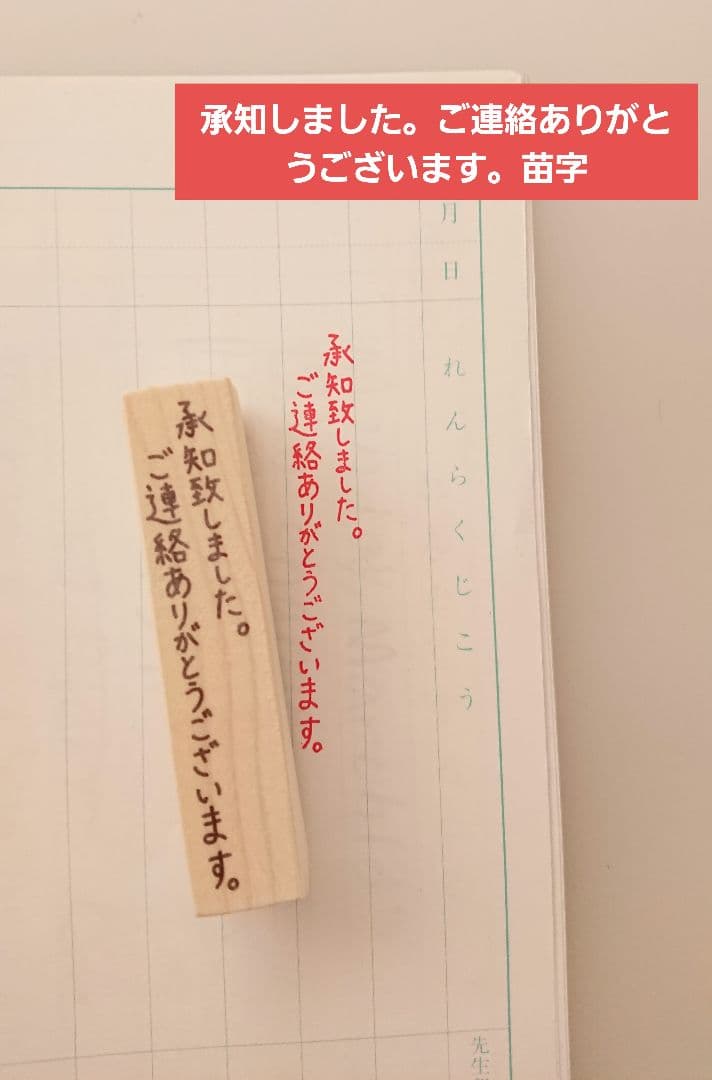 承知しました。ご連絡ありがと
うございます。苗字
月日
れんらくじこう
承知致しました。
ご連絡ありがとうございます。
承知致しました。
ご連絡ありがとうございます。
先生